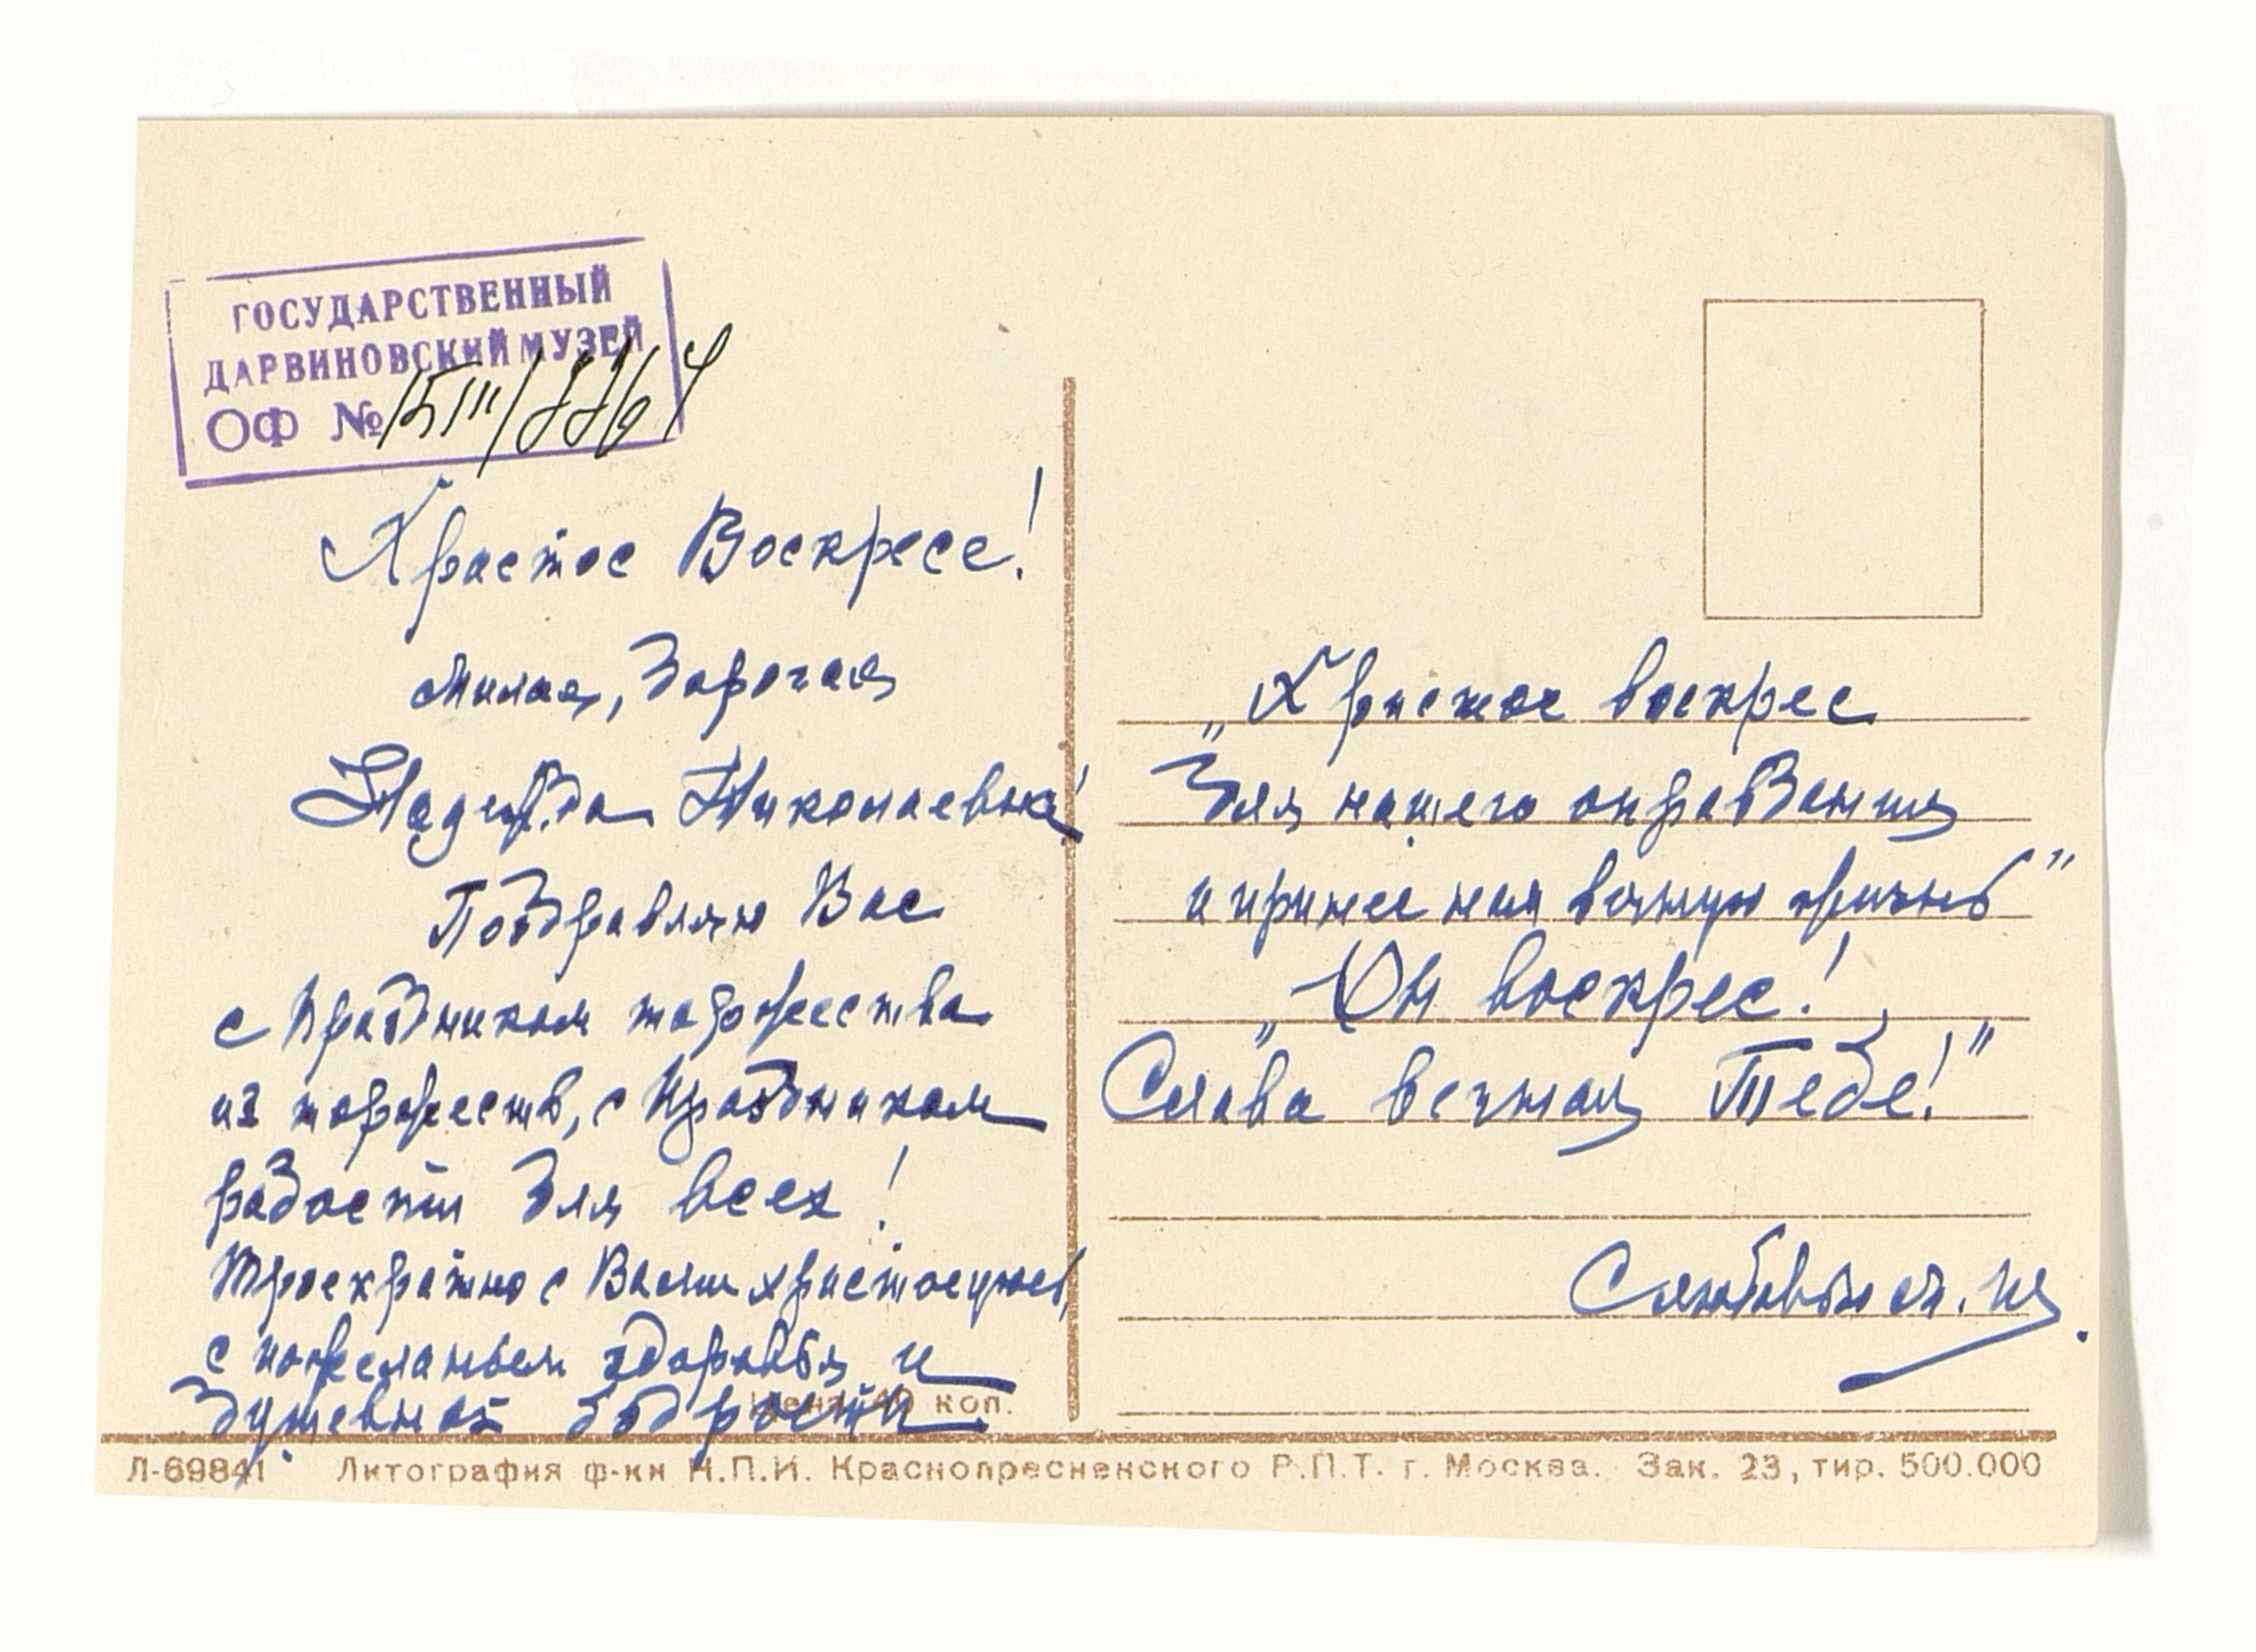 ГОСУДАРСТВЕННЫЙ
ДАРВИНОВСКИЙ МУЗЕЙ
ОФ №
Христос Воскресе!
Милая, дорогая
Надежда Николаевна!
Поздравляю Вас
с Праздником торжества
из торжеств, с Праздником
радости для всех!
Троекратно с Вами христосуюсь,
с пожеланьем здоровья и
душевной бодрости.
Цена 40 коп.
„Христос воскрес
для нашего оправдания
и принес нам вечную жизнь"
„Он воскрес!
Слава вечная Тебе!"
С любовью
Л-69841 Литография ф-ки Н.П.И. Краснопресненского Р.П.Т. г. Москва. Зак. 23, тир. 500.000